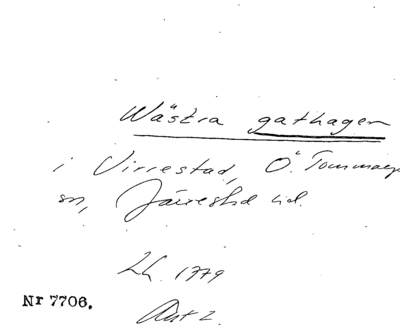 Wästra gathagen
i Virrestad, Ö. Tommarp
sn, Järrestad hd.
Lh. 1779
Nr 7706.
Akt 2.